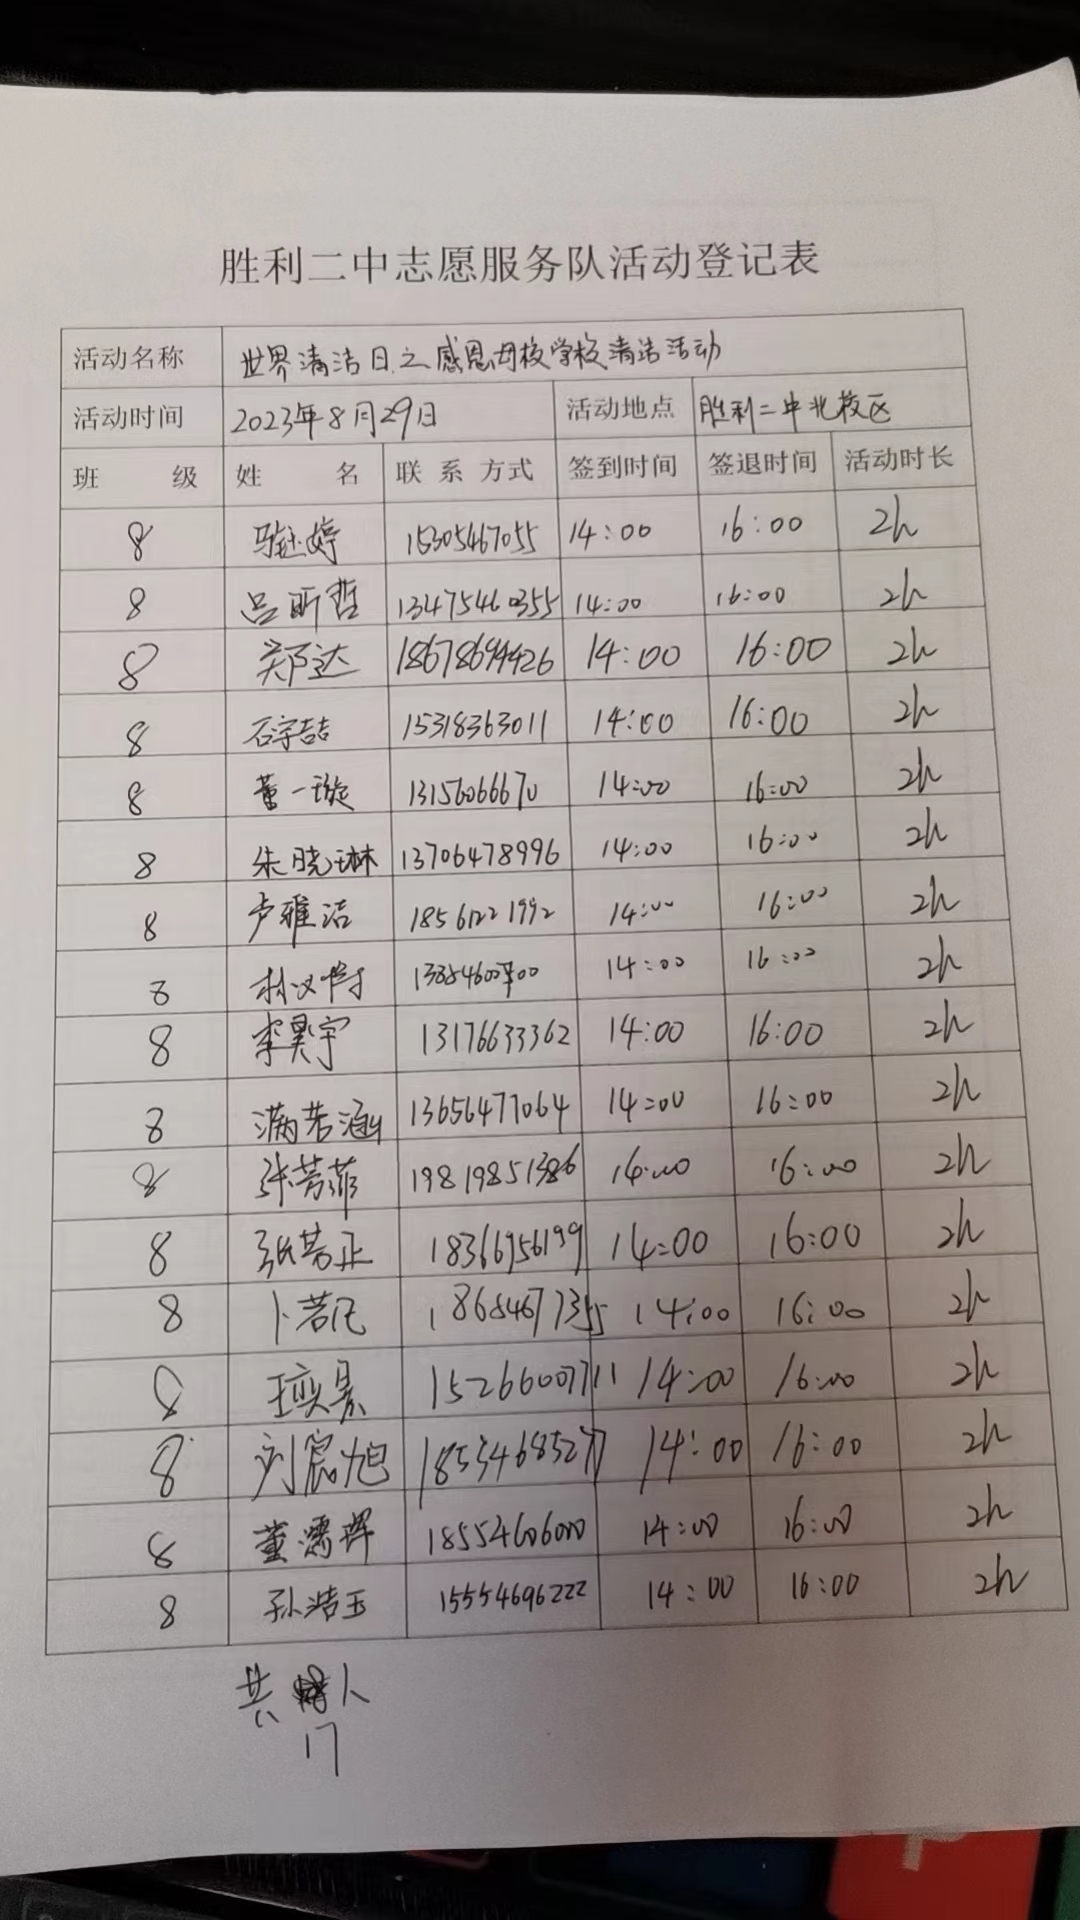 胜利二中志愿服务队活动登记表
活动名称 世界清洁日之感恩母校学校清洁活动
活动时间 2023年8月29日 活动地点 胜利二中北校区
班 级 姓 名 联 系 方式 签到时间 签退时间 活动时长
8 马钰婷 15305467055 14:00 16:00 2h
8 吕昕哲 13475460355 14:00 16:00 2h
8 郑达 18678694426 14:00 16:00 2h
8 石宇喆 15318363011 14:00 16:00 2h
8 董一璇 13156066670 14:00 16:00 2h
8 朱晓琳 13706478996 14:00 16:00 2h
8 卢雅洁 18561221992 14:00 16:00 2h
8 14:00 16:00 2h
8 李昊宇 13176633362 14:00 16:00 2h
8 满若涵 13656477064 14:00 16:00 2h
8 张芳菲 19819851386 14:00 16:00 2h
8 张芳正 18366956199 14:00 16:00 2h
8 卜若凡 14:00 16:00 2h
8 王奕景 15266007711 14:00 16:00 2h
8 刘宸旭 18534685277 14:00 16:00 2h
8 董儒晖 18554606000 14:00 16:00 2h
8 孙浩玉 15554696222 14:00 16:00 2h
共 人
17